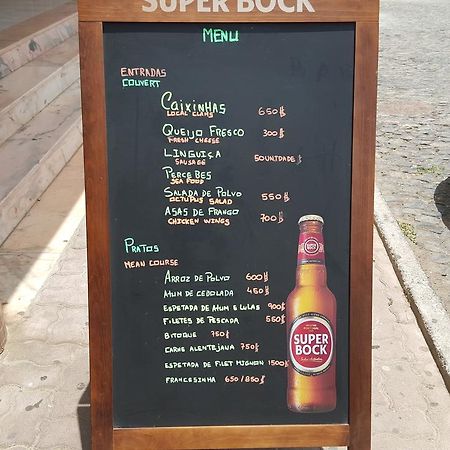 SUPER BOCK
MENU
ENTRADAS
COUVERT
CAIXINHAS 650$
LOCAL CLAMS
QUEIJO FRESCO 300$
FRESH CHEESE
LINGUIÇA 50UNIDADE
SAUSAGE
PERCEBES
SEA FOOD
SALADA DE POLVO 550$
OCTUPUS SALAD
ASAS DE FRANGO 700$
CHICKEN WINGS
PRATOS
MEAN COURSE
ARROZ DE POLVO 600$
ATUM DE CEBOLADA 450$
ESPETADA DE ATUM E LULAS 900$
FILETES DE PESCADA 550$
BITOQUE 750$
CARNE ALENTEJANA 750$
ESPETADA DE FILET MIGNON 1500$
FRANCESINHA 650/850$
SUPER
BOCK